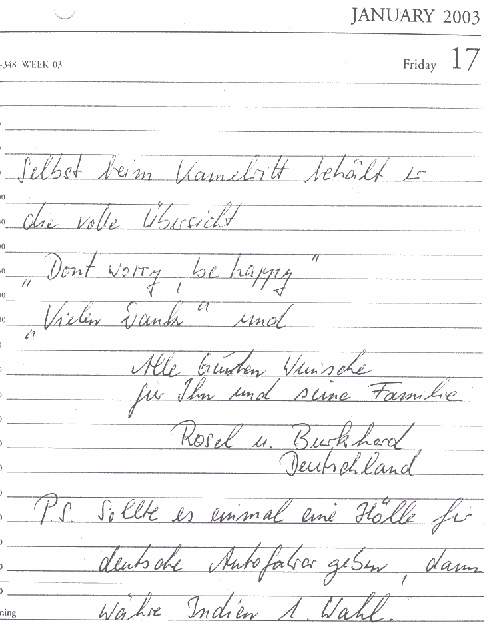 JANUARY 2003
-348 WEEK 03
Friday 17
Selbst beim Kamelritt behält er
die volle Übersicht
„Dont worry, be happy"
„Vielen Dank" und
Alle Guten Wünsche
für Ihn und seine Familie
Rosel u. Burkhard,
Deutschland
P.S. Sollte es einmal eine Hölle für
deutsche Autofahrer geben, dann
währe Indien 1. Wahl.
ning